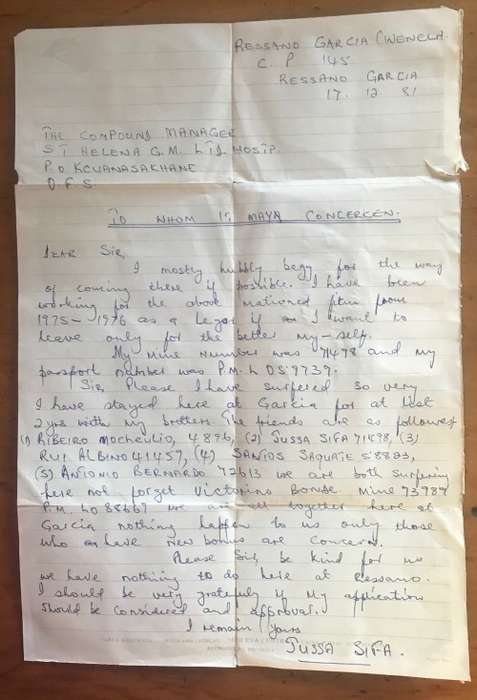 RESSANO GARCIA (WENELA
C. P 145
RESSANO GARCIA
17. 12 81
THE COMPOUND MANAGER
ST HELENA G.M LTD HOSTP
P O KCUANASAKHANE
O F S
TO WHOM IT MAYA CONCERCEN.
DEAR Sir,
I mostly hubbly begy for the way
of coming there if possible. I have been
working for the above mationed from
1975 - 1976 as a if I want to
leave only for the better my-self.
My mine number was 71498 and my
passport number was P.M.L DS 9739.
Sir, Please I have surfered so very
I have stayed here at Garcia for at last
2 yrs with my brothers. The friends are as followest
(1) RIBEIRO MOCHECULIO, 4896, (2) JUSSA SIFA 71498, (3)
RUI ALBINO 41457, (4) SANTOS SAQUATE 58893,
(5) ANTONIO BERNARDO 72613 we are both surfering
here not forget Victorino Bonde. Mine 73789
P.M. LO 88667 we are all together here at
Garcia nothing happen to us only those
who have new bonus are concern.
Please Sir, be kind for us
we have nothing to do here at Ressano.
I should be very gratefuly if My application
should be considered and approval.
I remain Yours
JUSSA SIFA.